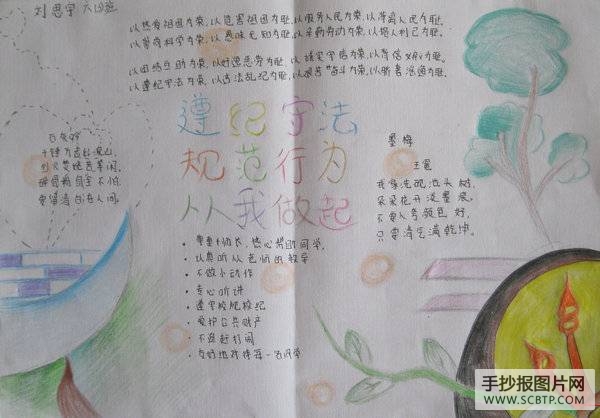 刘思宇 六四班
以热爱祖国为荣,以危害祖国为耻,以服务人民为荣,以背离人民为耻,
以崇尚科学为荣,以愚昧无知为耻,以辛勤劳动为荣,以损人利己为耻,
以团结互助为荣,以好逸恶劳为耻,以诚实守信为荣,以为耻,
以遵纪守法为荣,以违法乱纪为耻,以艰苦奋斗为荣,以骄奢淫逸为耻。
遵纪守法
规范行为
从我做起
石灰吟
千锤万击出深山,
烈火焚烧若等闲。
粉骨碎身全不怕,
要留清白在人间。
墨梅
王冕
我家洗砚池头树,
朵朵花开淡墨痕。
不要人夸颜色好,
只要清气满乾坤。
• 尊重师长,热心帮助同学,
• 认真听从老师的教导
• 不做小动作
• 专心听讲
• 遵守校规校纪
• 爱护公共财产
• 不追赶打闹
• 友好地对待每一名同学
手抄报图片网
WWW.SCBTP.COM